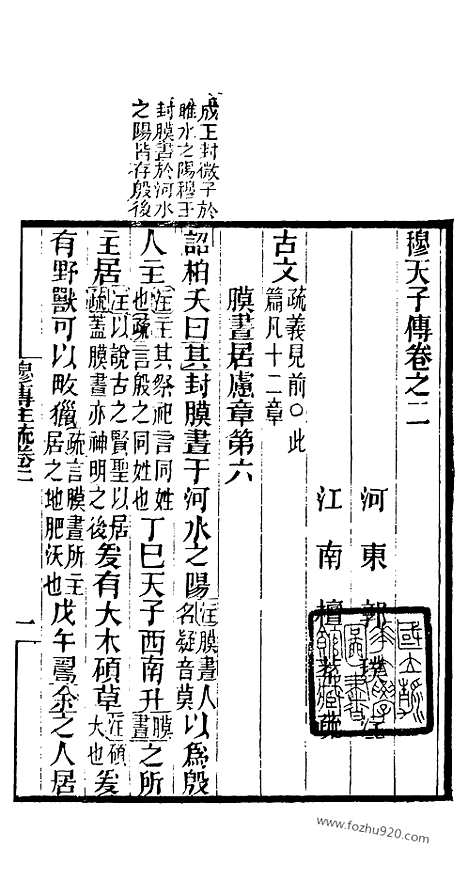 成王封微子於
雎水之陽穆王
封膜晝於河水
之陽皆存殷後
穆天子傳卷之二
河東郭璞注
江南檀萃疏
古文疏義見前○此篇凡十二章
膜晝居慮章第六
詔柏夭曰其封膜晝于河水之陽注膜晝人名疑音莫以為殷
人主注主其祭祀言同姓也疏言殷之同姓也丁巳天子西南升膜晝之所
主居注以說古之賢聖以居疏蓋膜晝亦神明之後爰有大木碩草注碩大也爰
有野獸可以畋獵疏言膜晝所主居之地肥沃也戊午余之人居
穆傳注疏卷二
一
www.fozhu920.com